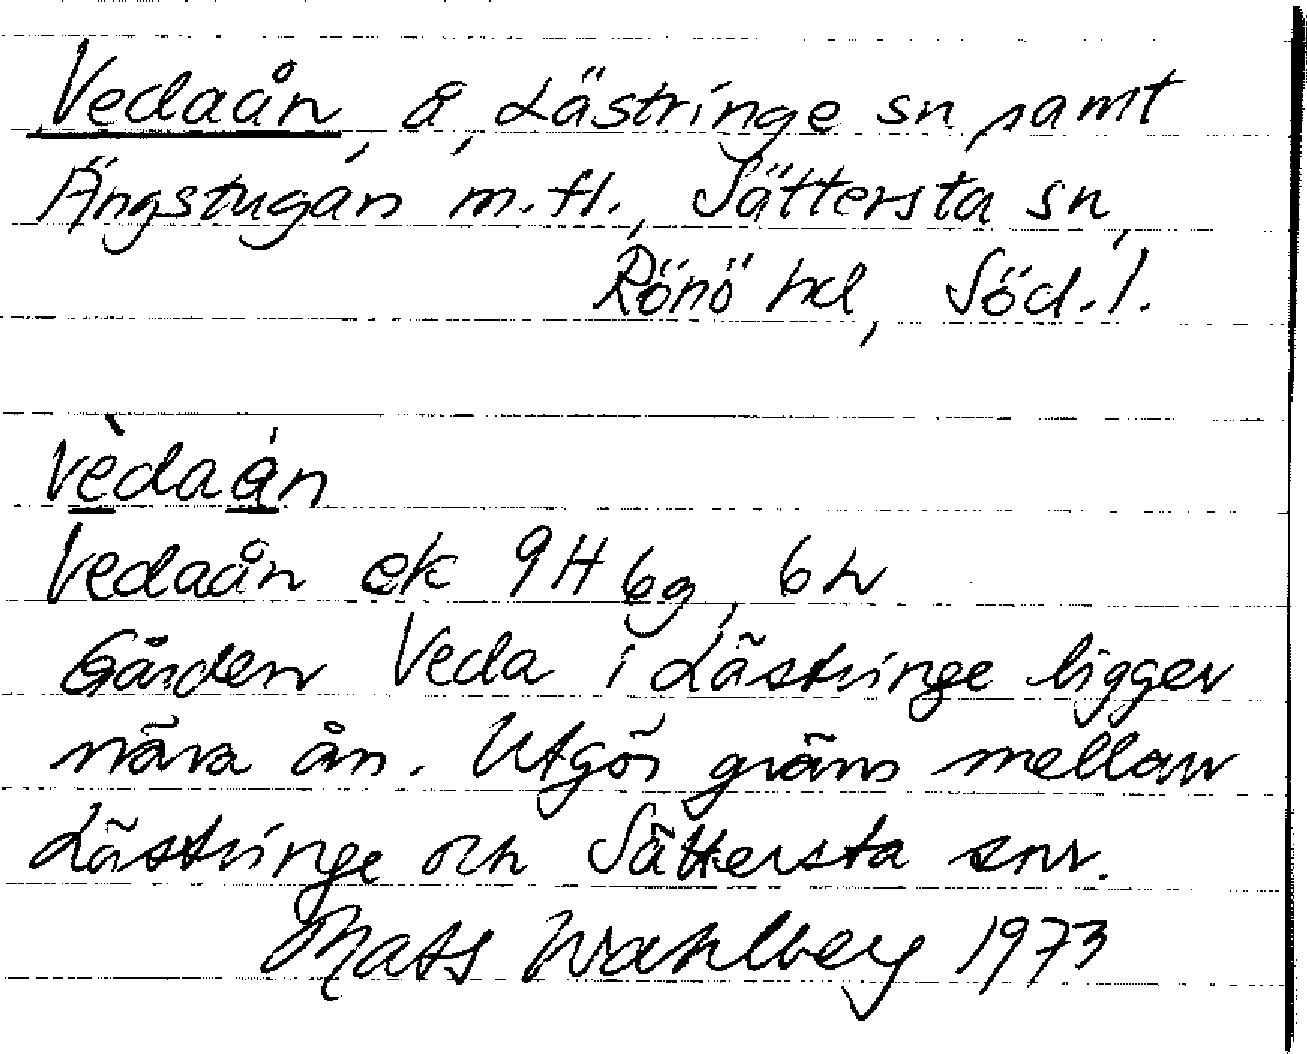 Vedaån, å, Lästringe sn samt
Ängstugån m.fl., Sättersta sn,
Rönö hd, Söd.l.
vèdaå̀n
Vedaån ek 9H 6g, 6h
Gården Veda i Lästringe ligger
nära ån. Utgör gräns mellan
Lästringe och Sättersta snr.
Mats Wahlberg 1973